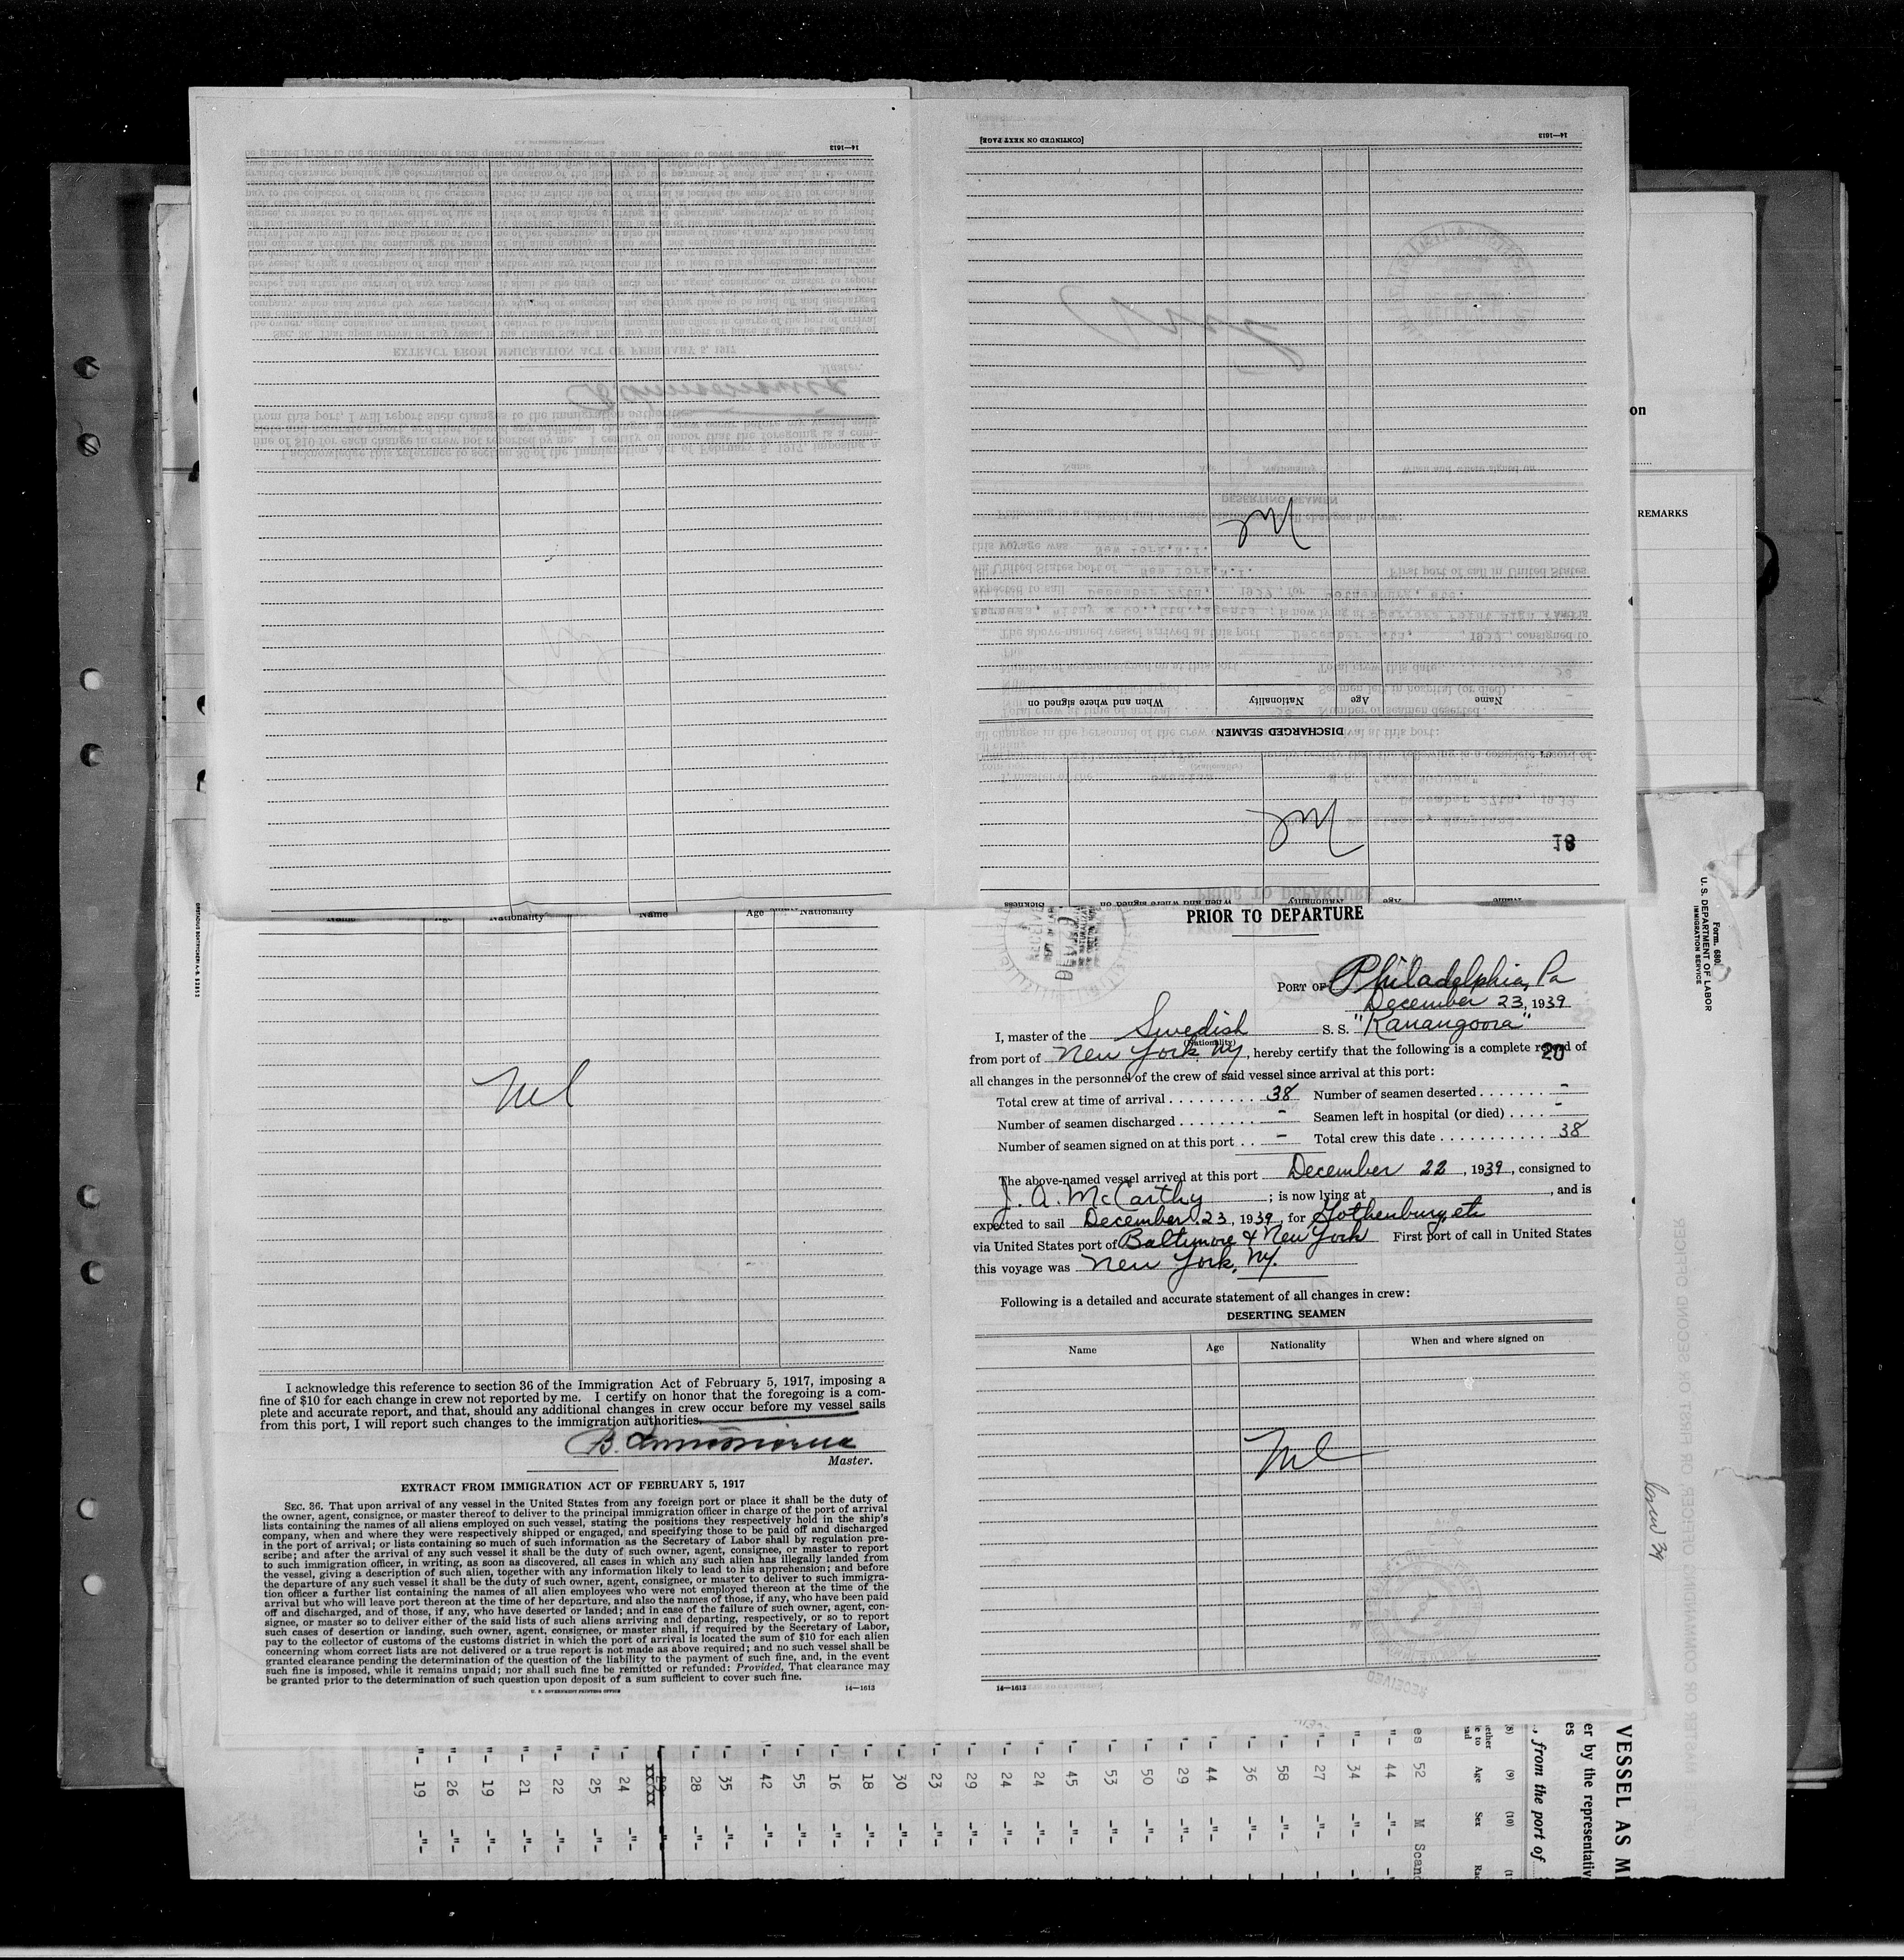 [CONTINUED ON NEXT PAGE]
14—1613
14—1613
When and where signed on
Nationality
Age
Name
DISCHARGED SEAMEN
Nil
Nil
18
Sickness
When and where signed on
Nationality
Age
Name
on
REMARKS
Form 680
U. S. DEPARTMENT OF LABOR
IMMIGRATION SERVICE
Name
Age
Nationality
Name
Age
Nationality
Nil
I acknowledge this reference to section 36 of the Immigration Act of February 5, 1917, imposing a
fine of $10 for each change in crew not reported by me. I certify on honor that the foregoing is a com-
plete and accurate report, and that, should any additional changes in crew occur before my vessel sails
from this port, I will report such changes to the immigration authorities.
B.
Master.
EXTRACT FROM IMMIGRATION ACT OF FEBRUARY 5, 1917
SEC. 36. That upon arrival of any vessel in the United States from any foreign port or place it shall be the duty of
the owner, agent, consignee, or master thereof to deliver to the principal immigration officer in charge of the port of arrival
lists containing the names of all aliens employed on such vessel, stating the positions they respectively hold in the ship's
company, when and where they were respectively shipped or engaged, and specifying those to be paid off and discharged
in the port of arrival; or lists containing so much of such information as the Secretary of Labor shall by regulation pre-
scribe; and after the arrival of any such vessel it shall be the duty of such owner, agent, consignee, or master to report
to such immigration officer, in writing, as soon as discovered, all cases in which any such alien has illegally landed from
the vessel, giving a description of such alien, together with any information likely to lead to his apprehension; and before
the departure of any such vessel it shall be the duty of such owner, agent, consignee, or master to deliver to such immigra-
tion officer a further list containing the names of all alien employees who were not employed thereon at the time of the
arrival but who will leave port thereon at the time of her departure, and also the names of those, if any, who have been paid
off and discharged, and of those, if any, who have deserted or landed; and in case of the failure of such owner, agent, con-
signee, or master so to deliver either of the said lists of such aliens arriving and departing, respectively, or so to report
such cases of desertion or landing, such owner, agent, consignee, or master shall, if required by the Secretary of Labor,
pay to the collector of customs of the customs district in which the port of arrival is located the sum of $10 for each alien
concerning whom correct lists are not delivered or a true report is not made as above required; and no such vessel shall be
granted clearance pending the determination of the question of the liability to the payment of such fine, and, in the event
such fine is imposed, while it remains unpaid; nor shall such fine be remitted or refunded: Provided, That clearance may
be granted prior to the determination of such question upon deposit of a sum sufficient to cover such fine.
U. S. GOVERNMENT PRINTING OFFICE
14—1613
PRIOR TO DEPARTURE
PORT OF Philadelphia, Pa
December 23, 1939
I, master of the Swedish S. S. "Kanangoora"
(Nationality)
from port of New York NY, hereby certify that the following is a complete record of
20
all changes in the personnel of the crew of said vessel since arrival at this port:
Total crew at time of arrival . . . . . . . . . . 38 Number of seamen deserted . . . . . . . -
Number of seamen discharged . . . . . . . . - Seamen left in hospital (or died) . . . . -
Number of seamen signed on at this port . . - Total crew this date . . . . . . . . . . . . 38
The above-named vessel arrived at this port December 22, 1939, consigned to
J. A. McCarthy ; is now lying at , and is
expected to sail December 23, 1939, for Gothenburg, etc
via United States port of Baltimore & New York First port of call in United States
this voyage was New York, NY.
Following is a detailed and accurate statement of all changes in crew:
DESERTING SEAMEN
Name Age Nationality When and where signed on
Nil
14—1613
RECEIVED
VESSEL AS M
er by the representativ
es
, from the port of
(8) (9) (10)
Age Sex
es 52 M Scand
-"- 44 -"-
-"- 34 -"-
-"- 27 -"-
-"- 58 -"-
-"- 36 -"-
-"- 44 -"-
-"- 29 -"-
-"- 50 -"-
-"- 53 -"-
-"- 45 -"-
-"- 24 -"-
-"- 24 -"-
-"- 29 -"-
-"- 23 -"-
-"- 30 -"-
-"- 18 -"-
-"- 16 -"-
-"- 55 -"-
-"- 42 -"-
-"- 35 -"-
-"- 28 -"-
-"- 24 -"-
-"- 25 -"-
-"- 22 -"-
-"- 21 -"-
-"- 19 -"-
-"- 26 -"-
-"- 19 -"-